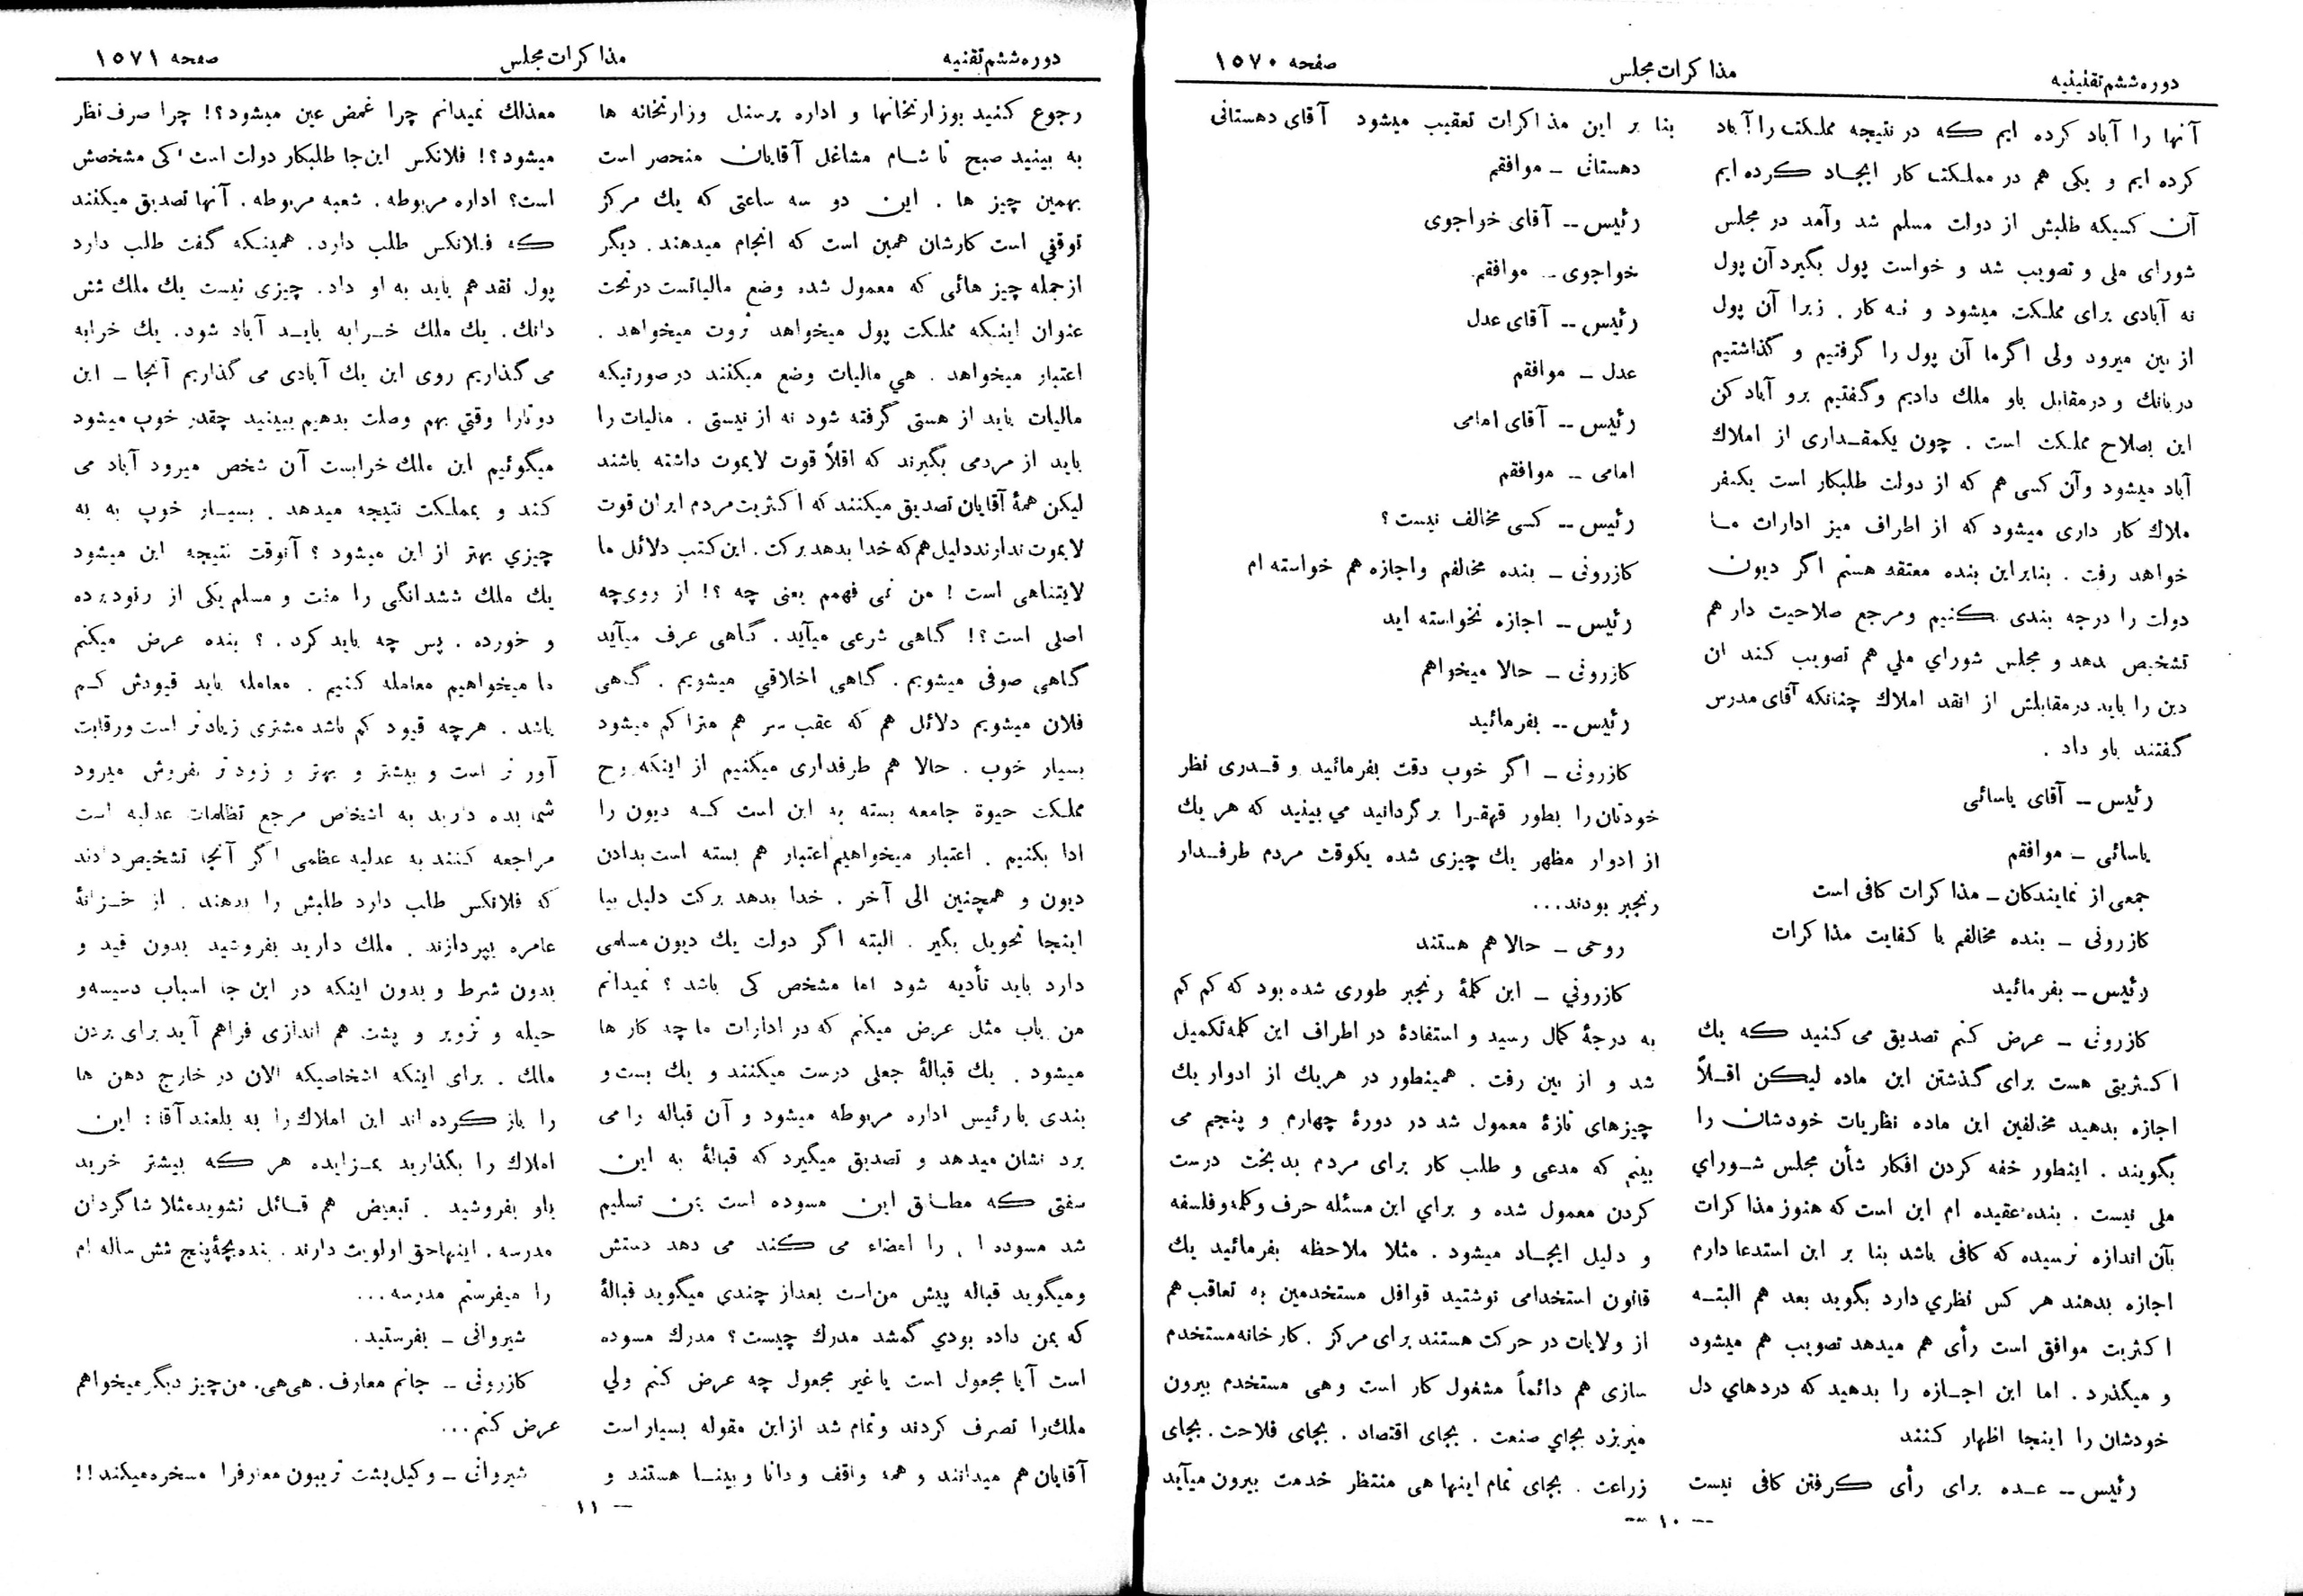 دوره ششم تقنینیه
مذاکرات مجلس
صفحه ۱۵۷۰
آنها را آباد کرده ایم که در نتیجه مملکت را آباد
کرده ایم و یکی هم در مملکت کار ایجاد کرده ایم
آن کسیکه طلبش از دولت مسلم شد وآمد در مجلس
شورای ملی و تصویب شد و خواست پول بگیرد آن پول
نه آبادی برای مملکت میشود و نه کار . زیرا آن پول
از بین میرود ولی اگرما آن پول را گرفتیم و گذاشتیم
دربانك و درمقابل باو ملك دادیم وگفتیم برو آباد کن
این بصلاح مملکت است . چون یکمقداری از املاك
آباد میشود وآن کسی هم که از دولت طلبکار است یکنفر
ملاك کار داری میشود که از اطراف میز ادارات ما
خواهد رفت . بنابراین بنده معتقد هستم اگر دیون
دولت را درجه بندی کنیم ومرجع صلاحیت دار هم
تشخیص بدهد و مجلس شورای ملی هم تصویب کند ان
دین را باید درمقابلش از انقد املاك چنانکه آقای مدرس
گفتند باو داد .
رئیس -- آقای یاسائی
یاسائی - موافقم
جمعی از نمایندکان - مذاکرات کافی است
کازرونی - بنده مخالفم با کفایت مذاکرات
رئیس -- بفرمائید
کازرونی - عرض کنم تصدیق می کنید که یك
اکثریتی هست برای گذشتن این ماده لیکن اقلاً
اجازه بدهید مخالفین این ماده نظریات خودشان را
بگویند . اینطور خفه کردن افکار شأن مجلس شورای
ملی نیست . بنده عقیده ام این است که هنوز مذاکرات
بآن اندازه نرسیده که کافی باشد بنا بر این استدعا دارم
اجازه بدهند هر کس نظری دارد بگوید بعد هم البته
اکثریت موافق است رأی هم میدهد تصویب هم میشود
و میگذرد . اما این اجازه را بدهید که دردهای دل
خودشان را اینجا اظهار کنند
رئیس -- عده برای رأی کرفتن کافی نیست
بنا بر این مذاکرات تعقیب میشود آقای دهستانی
دهستانی - موافقم
رئیس -- آقای خواجوی
خواجوی -- موافقم
رئیس -- آقای عدل
عدل - موافقم
رئیس -- آقای امامی
امامی -- موافقم
رئیس -- کسی مخالف نیست ؟
کازرونی - بنده مخالفم واجازه هم خواسته ام
رئیس -- اجازه نخواسته اید
کازرونی - حالا میخواهم
رئیس -- بفرمائید
کازرونی - اگر خوب دقت بفرمائید و قدری نظر
خودتان را بطور قهقرا برگردانید می بینید که هر یك
از ادوار مظهر یك چیزی شده یکوقت مردم طرفدار
رنجبر بودند...
روحی - حالا هم هستند
کازرونی - این کلمهٔ رنجبر طوری شده بود که کم کم
به درجهٔ کمال رسید و استفادهٔ در اطراف این کلمه تکمیل
شد و از بین رفت . همینطور در هریك از ادوار یك
چیزهای تازهٔ معمول شد در دورهٔ چهارم و پنجم می
بینم که مدعی و طلب کار برای مردم بدبخت درست
کردن معمول شده و برای این مسئله حرف وکلمه وفلسفه
و دلیل ایجاد میشود . مثلا ملاحظه بفرمائید یك
قانون استخدامی نوشتید قوافل مستخدمین به تعاقب هم
از ولایات در حرکت هستند برای مرکز . کارخانه مستخدم
سازی هم دائماً مشغول کار است وهی مستخدم بیرون
میریزد بجای صنعت . بجای اقتصاد . بجای فلاحت . بجای
زراعت . بجای تمام اینها هی منتظر خدمت بیرون میآید
-- ۱۰ --
دوره ششم تقنیه
مذاکرات مجلس
صفحه ۱۵۷۱
رجوع کنید بوزارتخانها و اداره پرسنل وزارتخانه ها
به بینید صبح تا شام مشاغل آقایان منحصر است
بهمین چیز ها . این دو سه ساعتی که یك مرکز
توقفی است کارشان همین است که انجام میدهند . دیگر
ازجمله چیز هائی که معمول شده وضع مالیاتست درتحت
عنوان اینکه مملکت پول میخواهد ثروت میخواهد .
اعتبار میخواهد . هی مالیات وضع میکنند درصورتیکه
مالیات باید از هستی گرفته شود نه از نیستی . مالیات را
باید از مردمی بگیرند که اقلاً قوت لایموت داشته باشند
لیکن همهٔ آقایان تصدیق میکنند که اکثریت مردم ایران قوت
لایموت ندارند دلیل هم که خدا بدهد برکت . این کتب دلائل ما
لایتناهی است ! من نمی فهمم یعنی چه ؟! از روی چه
اصلی است ؟! گاهی شرعی میآید . گاهی عرف میآید
گاهی صوفی میشویم . گاهی اخلاقی میشویم . گاهی
فلان میشویم دلائل هم که عقب سر هم متراکم میشود
بسیار خوب . حالا هم طرفداری میکنیم از اینکه روح
مملکت حیوة جامعه بسته به این است که دیون را
ادا بکنیم . اعتبار میخواهیم اعتبار هم بسته است بدادن
دیون و همچنین الی آخر . خدا بدهد برکت دلیل بیا
اینجا تحویل بگیر . البته اگر دولت یك دیون مسلمی
دارد باید تأدیه شود اما مشخص کی باشد ؟ نمیدانم
من باب مثل عرض میکنم که در ادارات ما چه کار ها
میشود . یك قبالهٔ جعلی درست میکنند و یك بست و
بندی با رئیس اداره مربوطه میشود و آن قباله را می
برد نشان میدهد و تصدیق میگیرد که قبالهٔ به این
سفتی که مطابق این مسوده است بمن تسلیم
شد مسوده را امضاء می کند می دهد دستش
ومیگوید قباله پیش من است بعداز چندی میگوید قبالهٔ
که بمن داده بودی گمشد مدرك چیست ؟ مدرك مسوده
است آیا مجعول است یا غیر مجعول چه عرض کنم ولی
ملك را تصرف کردند وتمام شد ازاین مقوله بسیار است
آقایان هم میدانند و همه واقف و دانا و بینا هستند و
معذلك نمیدانم چرا غمض عین میشود؟! چرا صرف نظر
میشود؟! فلانکس این جا طلبکار دولت است کی مشخصش
است؟ اداره مربوطه . شعبه مربوطه . آنها تصدیق میکنند
که فلانکس طلب دارد . همینکه گفت طلب دارد
پول نقد هم باید به او داد . چیزی نیست یك ملك شش
دانك . یك ملك خرابه باید آباد شود . یك خرابه
می گذاریم روی این یك آبادی می گذاریم آنجا - این
دوتارا وقتی بهم وصلت بدهیم ببینید چقدر خوب میشود
میگوئیم این ملك خرابست آن شخص میرود آباد می
کند و بمملکت نتیجه میدهد . بسیار خوب به به
چیزی بهتر از این میشود ؟ آنوقت نتیجه این میشود
یك ملك ششدانگی را مفت و مسلم یکی از رنود برده
و خورده . پس چه باید کرد . ؟ بنده عرض میکنم
ما میخواهیم معامله کنیم . معامله باید قیودش کم
باشد . هرچه قیود کم باشد مشتری زیادتر است ورقابت
آور تر است و بیشتر و بهتر و زود تر بفروش میرود
شما بده دارید به اشخاص مرجع تظلمات عدلیه است
مراجعه کنند به عدلیه عظمی اگر آنجا تشخیص دادند
که فلانکس طلب دارد طلبش را بدهند . از خزانهٔ
عامره بپردازند . ملك دارید بفروشید بدون قید و
بدون شرط و بدون اینکه در این جا اسباب دسیسه و
حیله و تزویر و پشت هم اندازی فراهم آید برای بردن
ملك . برای اینکه اشخاصیکه الان در خارج دهن ها
را باز کرده اند این املاك را به بلعند آقا : این
املاك را بگذارید بمزایده هر که بیشتر خرید
باو بفروشید . تبعیض هم قائل نشوید مثلا شاگردان
مدرسه . اینها حق اولویت دارند . بنده بچهٔ پنج شش ساله ام
را میفرستم مدرسه ...
شیروانی - بفرستید .
کازرونی -- جانم معارف . هی هی . من چیز دیگر میخواهم
عرض کنم ...
شیروانی - وکیل پشت تریبون معارفرا مسخره میکند !!
-- ۱۱